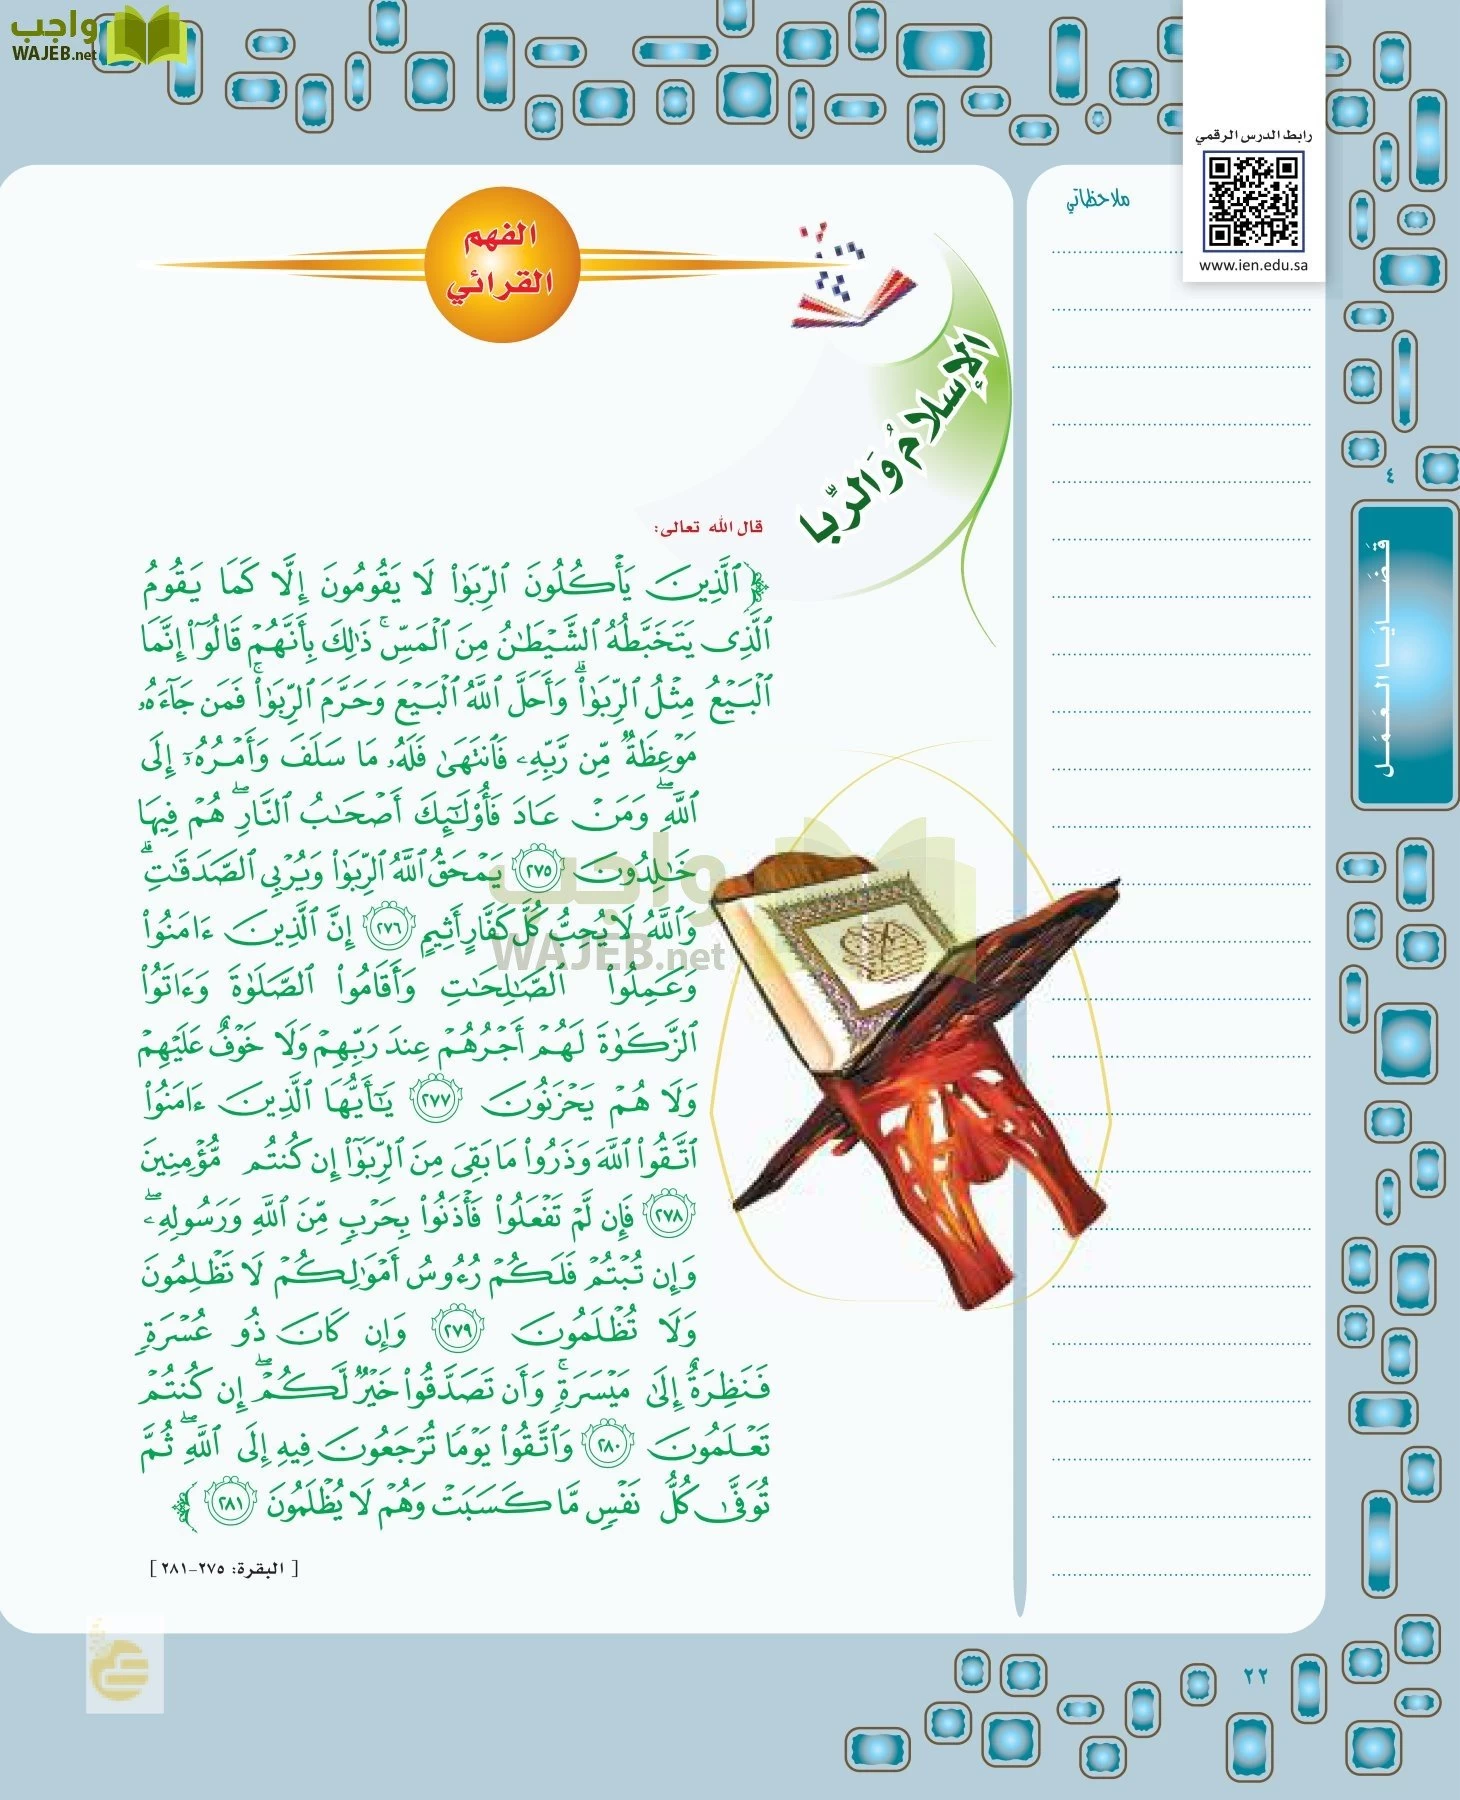 واجب
WAJEB.net
رابط الدرس الرقمي
www.ien.edu.sa
ملاحظاتي
الفهم
القرائي
الإسلامُ وَالرِّبا
قال الله تعالى:
﴿ٱلَّذِينَ يَأۡكُلُونَ ٱلرِّبَوٰاْ لَا يَقُومُونَ إِلَّا كَمَا يَقُومُ
ٱلَّذِي يَتَخَبَّطُهُ ٱلشَّيۡطَٰنُ مِنَ ٱلۡمَسِّۚ ذَٰلِكَ بِأَنَّهُمۡ قَالُوٓاْ إِنَّمَا
ٱلۡبَيۡعُ مِثۡلُ ٱلرِّبَوٰاْۗ وَأَحَلَّ ٱللَّهُ ٱلۡبَيۡعَ وَحَرَّمَ ٱلرِّبَوٰاْۚ فَمَن جَآءَهُۥ
مَوۡعِظَةٞ مِّن رَّبِّهِۦ فَٱنتَهَىٰ فَلَهُۥ مَا سَلَفَ وَأَمۡرُهُۥٓ إِلَى
ٱللَّهِۖ وَمَنۡ عَادَ فَأُوْلَٰٓئِكَ أَصۡحَٰبُ ٱلنَّارِۖ هُمۡ فِيهَا
خَٰلِدُونَ ٢٧٥ يَمۡحَقُ ٱللَّهُ ٱلرِّبَوٰاْ وَيُرۡبِي ٱلصَّدَقَٰتِۗ
وَٱللَّهُ لَا يُحِبُّ كُلَّ كَفَّارٍ أَثِيمٍ ٢٧٦ إِنَّ ٱلَّذِينَ ءَامَنُواْ
وَعَمِلُواْ ٱلصَّٰلِحَٰتِ وَأَقَامُواْ ٱلصَّلَوٰةَ وَءَاتَوُاْ
ٱلزَّكَوٰةَ لَهُمۡ أَجۡرُهُمۡ عِندَ رَبِّهِمۡ وَلَا خَوۡفٌ عَلَيۡهِمۡ
وَلَا هُمۡ يَحۡزَنُونَ ٢٧٧ يَٰٓأَيُّهَا ٱلَّذِينَ ءَامَنُواْ
ٱتَّقُواْ ٱللَّهَ وَذَرُواْ مَا بَقِيَ مِنَ ٱلرِّبَوٰٓاْ إِن كُنتُم مُّؤۡمِنِينَ
٢٧٨ فَإِن لَّمۡ تَفۡعَلُواْ فَأۡذَنُواْ بِحَرۡبٖ مِّنَ ٱللَّهِ وَرَسُولِهِۦۖ
وَإِن تُبۡتُمۡ فَلَكُمۡ رُءُوسُ أَمۡوَٰلِكُمۡ لَا تَظۡلِمُونَ
وَلَا تُظۡلَمُونَ ٢٧٩ وَإِن كَانَ ذُو عُسۡرَةٖ
فَنَظِرَةٌ إِلَىٰ مَيۡسَرَةٖۚ وَأَن تَصَدَّقُواْ خَيۡرٞ لَّكُمۡۖ إِن كُنتُمۡ
تَعۡلَمُونَ ٢٨٠ وَٱتَّقُواْ يَوۡمٗا تُرۡجَعُونَ فِيهِ إِلَى ٱللَّهِۖ ثُمَّ
تُوَفَّىٰ كُلُّ نَفۡسٖ مَّا كَسَبَتۡ وَهُمۡ لَا يُظۡلَمُونَ ٢٨١﴾
[ البقرة: ٢٧٥-٢٨١ ]
واجب
WAJEB.net
٤
قَضَايَا العَمَل
٢٢